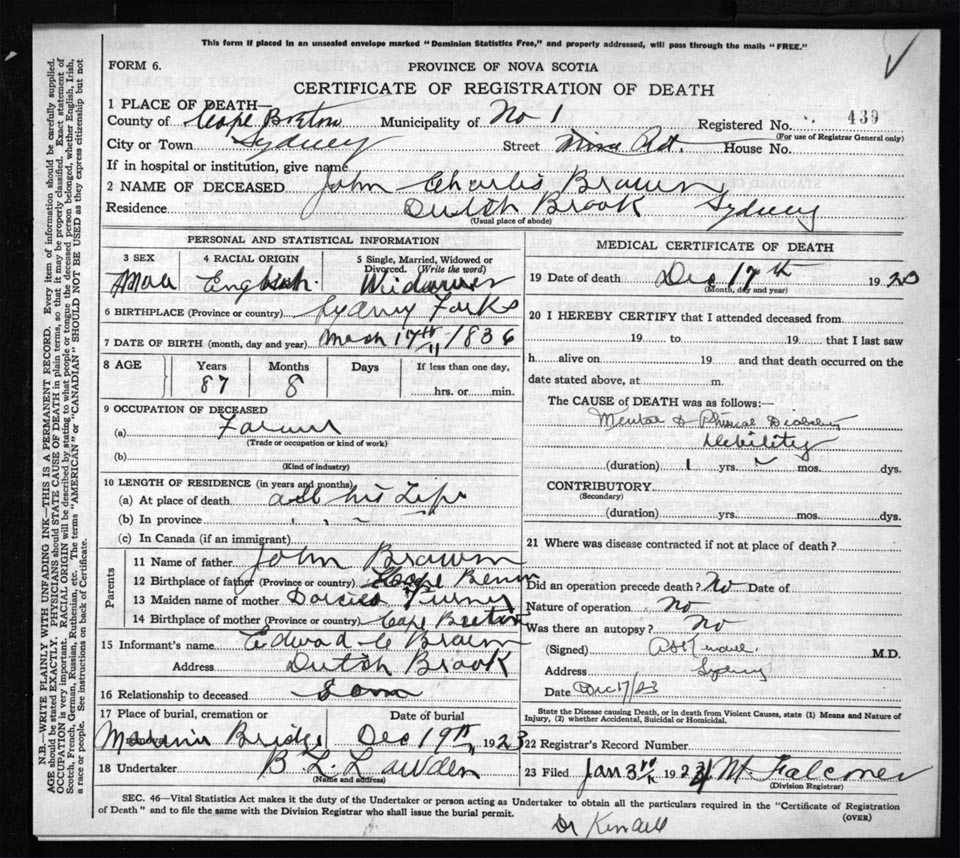 This form if placed in an unsealed envelope marked "Dominion Statistics Free," and properly addressed, will pass through the mails "FREE."
FORM 6.
PROVINCE OF NOVA SCOTIA
CERTIFICATE OF REGISTRATION OF DEATH
1 PLACE OF DEATH—
County of Cape Breton Municipality of No 1 Registered No. 439
(For use of Registrar General only)
City or Town Sydney Street Mira Rd. House No.
If in hospital or institution, give name
2 NAME OF DECEASED John Charles Brown
Residence Dutch Brook Sydney
(Usual place of abode)
PERSONAL AND STATISTICAL INFORMATION
3 SEX 4 RACIAL ORIGIN 5 Single, Married, Widowed or Divorced. (Write the word)
English. Widower
6 BIRTHPLACE (Province or country) Sydney Forks
7 DATE OF BIRTH (month, day and year) March 17th 1836
8 AGE Years Months Days If less than one day,
87 8 hrs. or min.
9 OCCUPATION OF DECEASED
(a) Farmer
(Trade or occupation or kind of work)
(b)
(Kind of industry)
10 LENGTH OF RESIDENCE (in years and months)
(a) At place of death all his Life
(b) In province
(c) In Canada (if an immigrant)
Parents
11 Name of father John Brown
12 Birthplace of father (Province or country) Cape
13 Maiden name of mother
14 Birthplace of mother (Province or country) Cape Breton
15 Informant's name Edward C Brown
Address Dutch Brook
16 Relationship to deceased Son
17 Place of burial, cremation or removal Date of burial
Bridge Dec 19th 1923
18 Undertaker B L
(Name and address)
MEDICAL CERTIFICATE OF DEATH
19 Date of death Dec 17th 1923
(Month, day and year)
20 I HEREBY CERTIFY that I attended deceased from
19 to 19 that I last saw
h alive on 19 and that death occurred on the
date stated above, at m.
The CAUSE of DEATH was as follows:—
Mental & Physical
debility
(duration) 1 yrs. mos. dys.
CONTRIBUTORY
(Secondary)
(duration) yrs. mos. dys.
21 Where was disease contracted if not at place of death?
Did an operation precede death? No Date of
Nature of operation No
Was there an autopsy? No
(Signed) M.D.
Address Sydney
Date Dec 17/23
State the Disease causing Death, or in death from Violent Causes, state (1) Means and Nature of
Injury, (2) whether Accidental, Suicidal or Homicidal.
22 Registrar's Record Number
23 Filed Jan 3rd 1924 M. Falconer
(Division Registrar)
SEC. 46—Vital Statistics Act makes it the duty of the Undertaker or person acting as Undertaker to obtain all the particulars required in the "Certificate of Registration
of Death" and to file the same with the Division Registrar who shall issue the burial permit.
(OVER)
Dr Kendall
N.B.—WRITE PLAINLY WITH UNFADING INK—THIS IS A PERMANENT RECORD. Every item of information should be carefully supplied.
AGE should be stated EXACTLY. PHYSICIANS should STATE CAUSE OF DEATH in plain terms, so that it may be properly classified. Exact statement of
OCCUPATION is very important. RACIAL ORIGIN will be described by stating to what people or tongue the deceased person belonged, whether English, Irish,
Scotch, French, German, Russian, Ruthenian, etc. The terms "AMERICAN" or "CANADIAN" SHOULD NOT BE USED as they express citizenship but not
a race or people. See instructions on back of Certificate.